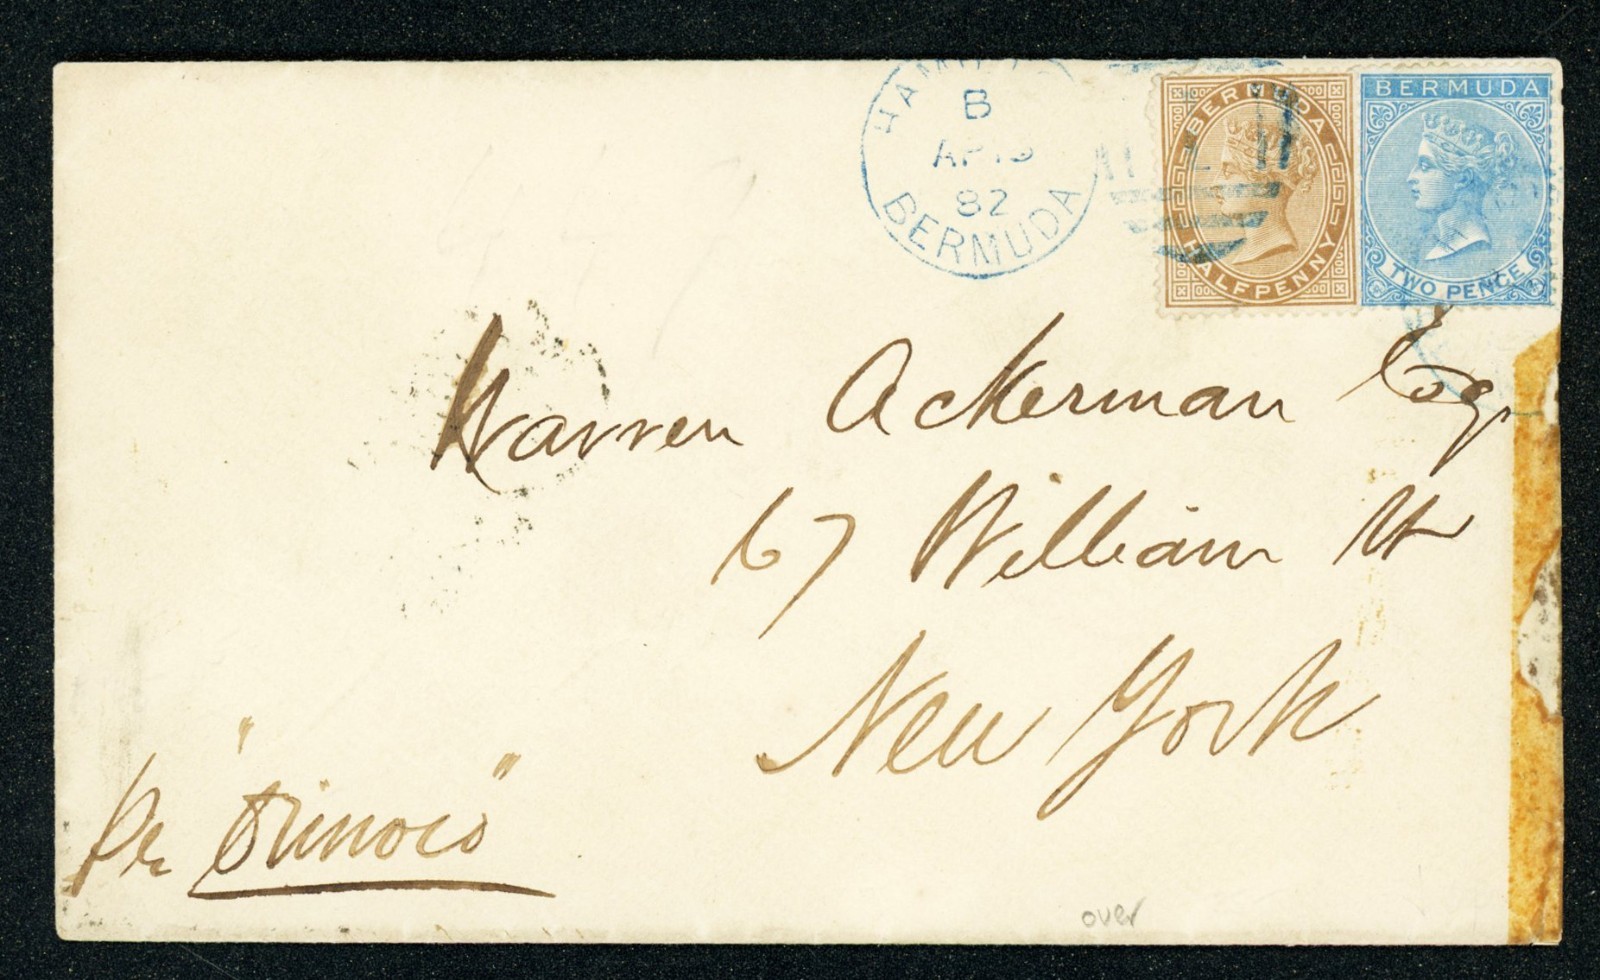 HAMILTON
B
AP 13
82
BERMUDA
BERMUDA
HALFPENNY
BERMUDA
TWO PENCE
Warren Ackerman Esq.
67 William St
New York
Per "Orinoco"
over